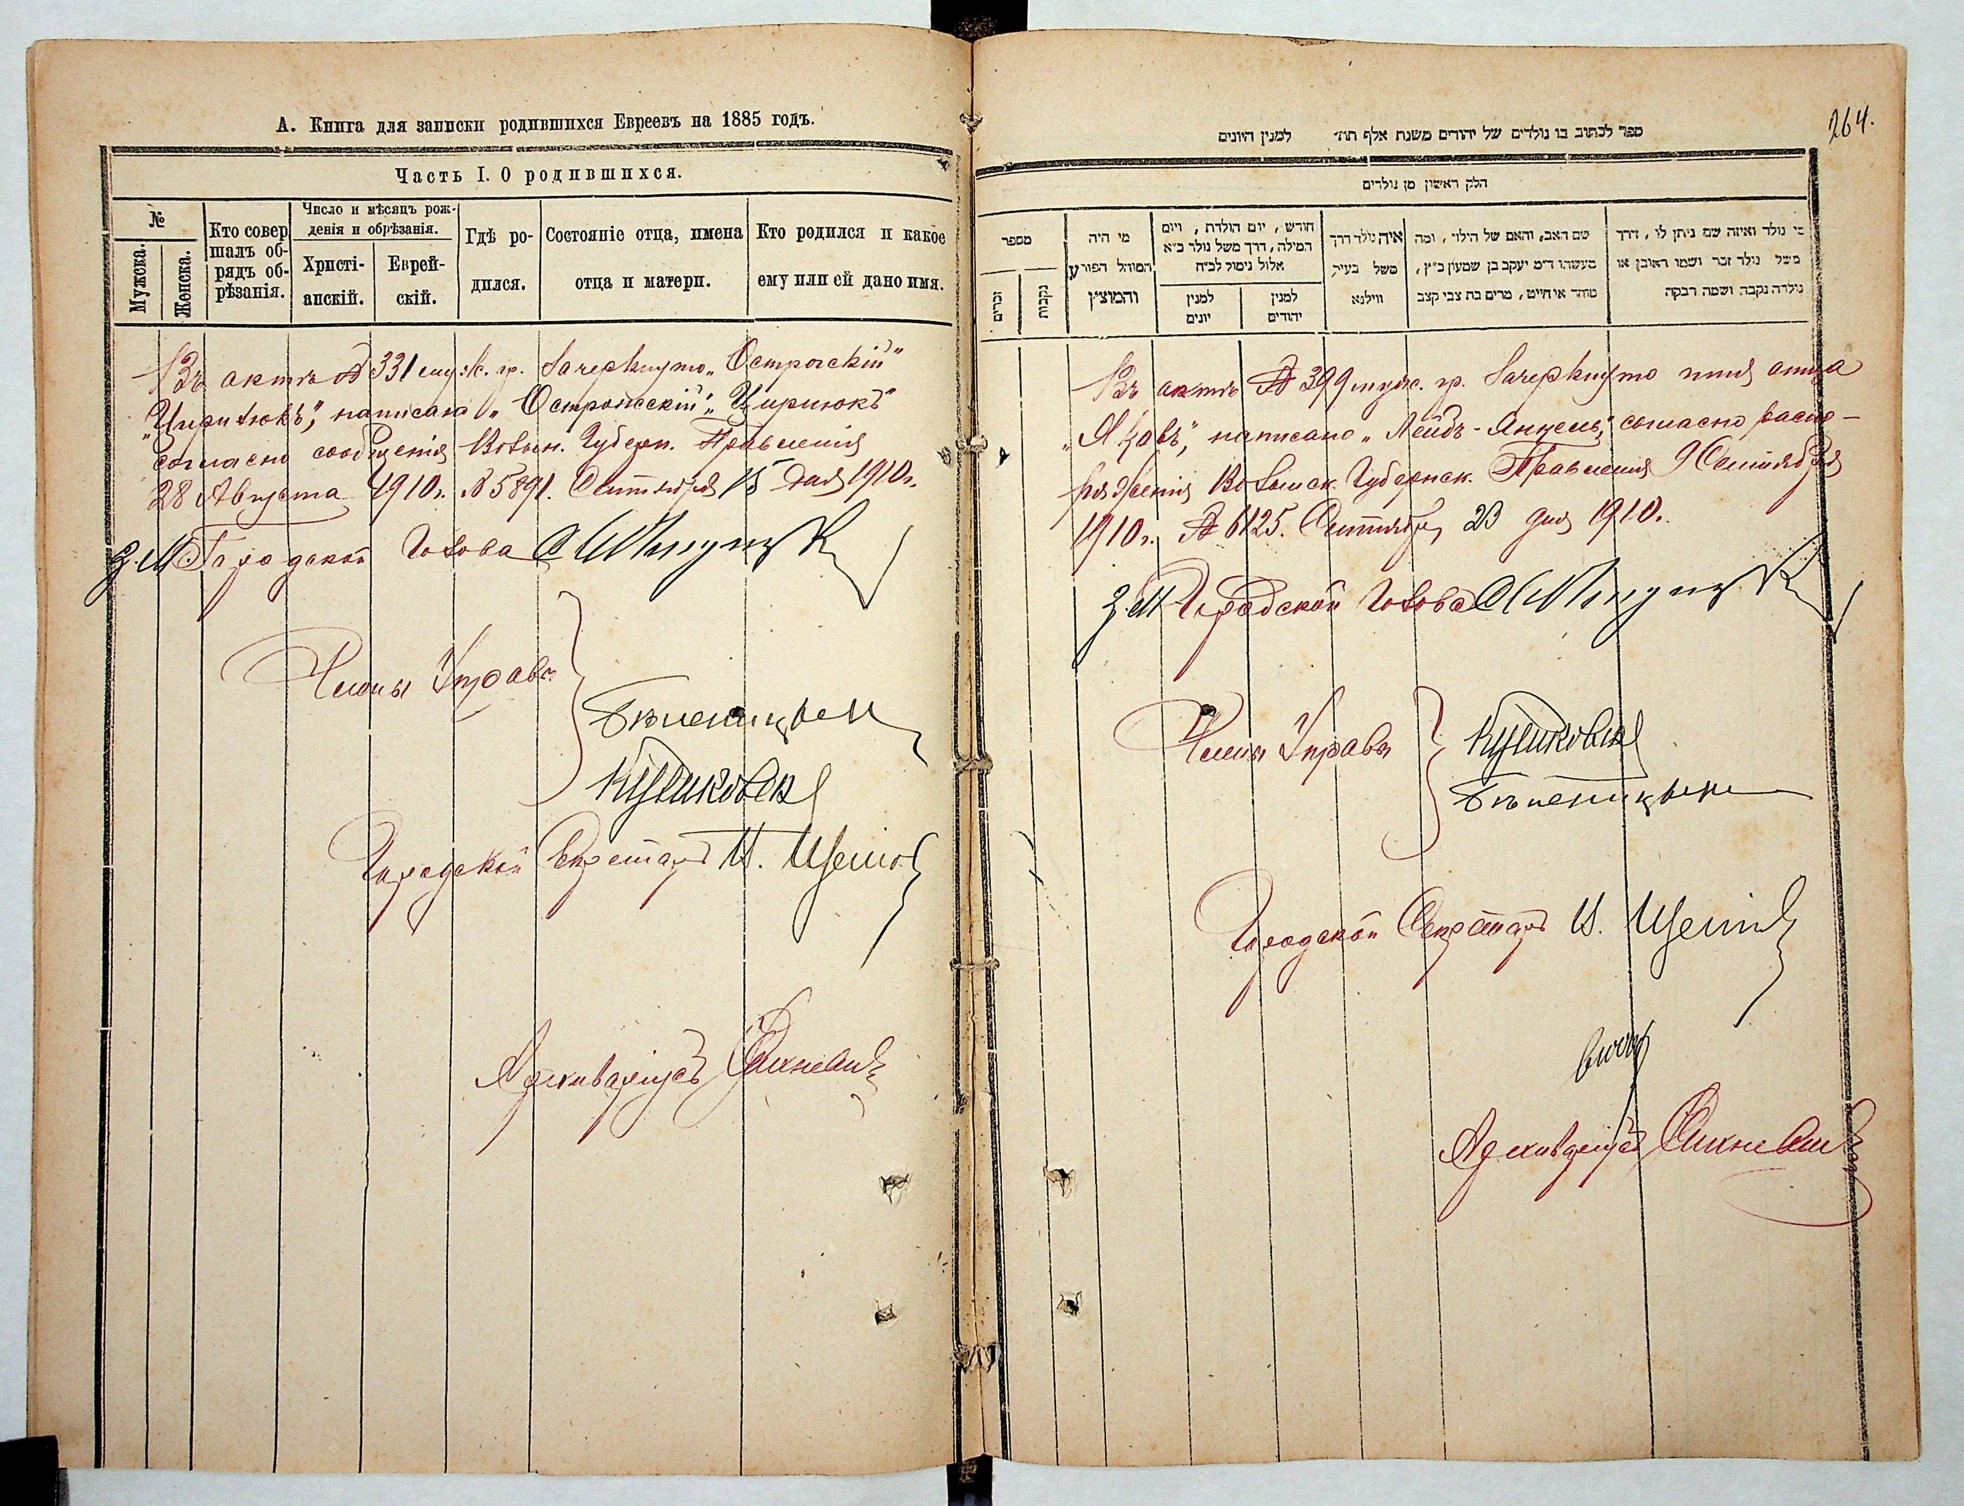 А. Книга для записки родившихся Евреевъ на 1885 годъ.
Часть I. О родившихся.
№
Мужска.
Женска.
Кто совер
шалъ об-
рядъ об-
рѣзанія.
Число и мѣсяцъ рож-
денія и обрѣзанія.
Христі-
анскій.
Еврей-
скій.
Гдѣ ро-
дился.
Состояніе отца, имена
отца и матери.
Кто родился и какое
ему или ей дано имя.
Въ актѣ № 331 муж. гр. Зачеркнуто „Острогскій"
"Циритюкъ", написано „Острожскій" „Цирнюкъ"
согласно сообщенія Волын. Губерн. Правленія
28 Августа 1910 г. № 5891. Сентября 15 дня 1910 г.
З. М. Городской Голова
Члены Управы
Городской Секретарь И.
Архиваріусъ
264.
ספר לכתוב בו נולדים של יהודים משנת אלף תת' למנין היונים
חלק ראשון מן נולדים
מספר
זכרים
נקבות
מי היה
המוהל הפורע
והמוצץ
חודש, יום הולדת, ויום
המילה, דרך משל נולד כ"א
אלול נימול לכ"ח
למנין
יונים
למנין
יהודים
איה נולד דרך
משל בעיר
ווילנא
שם האב, והאם של הילוד, ומה
מעשהו ד"מ יעקב בן שמעון כ"ץ,
סוחר או חייט, מרים בת צבי קצב
מי נולד ואיזה שם ניתן לו, דרך
משל נולד זכר ושמו ראובן או
נולדה נקבה ושמה רבקה
Въ актѣ № 399 муж. гр. Зачеркнуто имя отца
„Яковъ", написано „Лейдъ-Янкель", согласно распо-
ряженія Волынск. Губернск. Правленія 9 Сентября
1910 г. № 6125. Сентября 23 дня 1910 г.
З. М. Городской Голова
Члены Управы
Городской Секретарь И.
Архиваріусъ